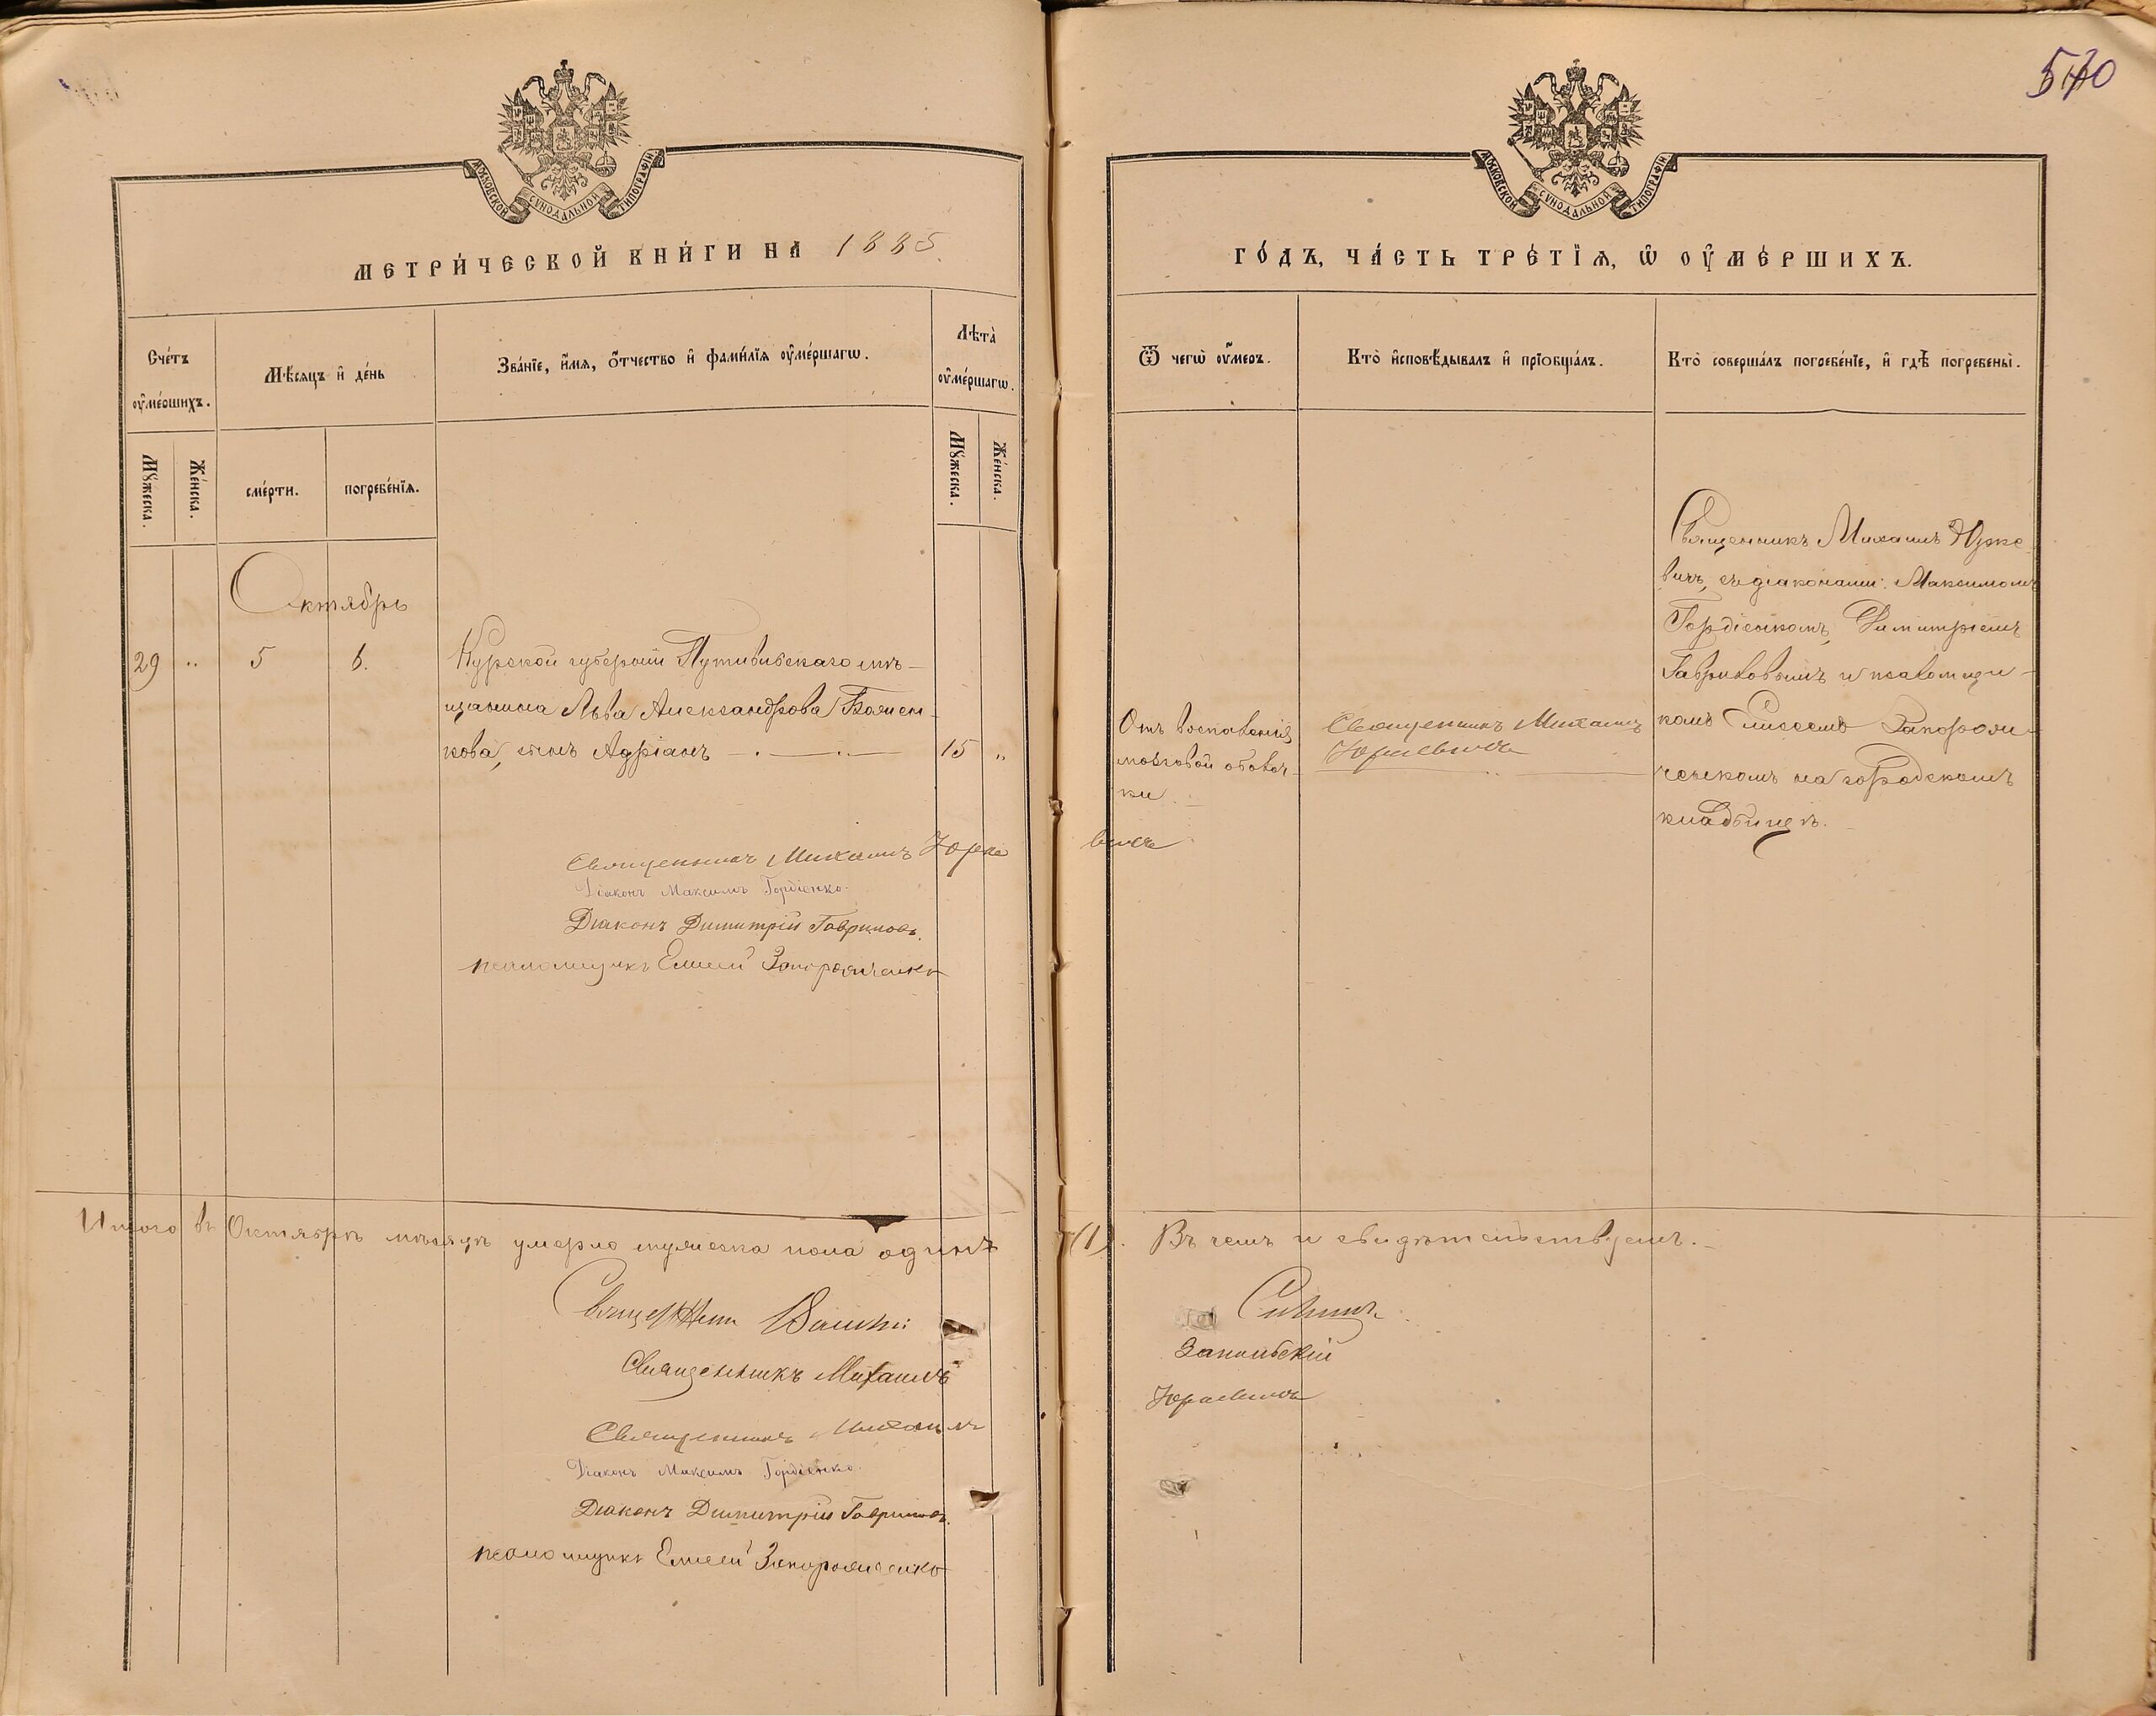 570
МОСКОВСКОЙ СУНОДАЛЬНОЙ ТИПОГРАФІИ
МОСКОВСКОЙ СУНОДАЛЬНОЙ ТИПОГРАФІИ
МЕТРИ́ЧЕСКОЙ КНИ́ГИ НА 1885
ГО́ДЪ, ЧА́СТЬ ТРЕ́ТІЯ, Ѡ ОУ҆МЕ́РШИХЪ.
Сче́тъ оу҆ме́ршихъ.
Мѣ́сяцъ и҆ де́нь
Зва́нїе, и҆́мя, ѻ҆́тчество и҆ фами́лїя оу҆ме́ршагѡ.
Лѣта̀ оу҆ме́ршагѡ.
Ѿ чегѡ̀ оу҆́меръ.
Кто̀ и҆сповѣ́дывалъ и҆ прїобща́лъ.
Кто̀ соверша́лъ погребе́нїе, и҆ гдѣ̀ погребены̀.
Мꙋ́жеска.
Же́нска.
сме́рти.
погребе́нїя.
Мꙋ́жеска.
Же́нска.
Октябрь
29 „ 5 6.
Курской губерніи Путивльскаго мѣ-
щанина Льва Александрова
кова, сынъ Адріанъ
15 „
Отъ воспаленія
мозговой оболоч-
ки
Священникъ Михаилъ
Юркевичъ
Священникъ Михаилъ Юрке
вичъ, съ діаконами: Максимомъ
Гордіенкомъ, Димитріемъ
Гавриловымъ и псаломщи-
комъ Елисеемъ Запорож-
ченкомъ на городскомъ
кладбищѣ.
Священникъ Михаилъ Юрке вичъ
Діаконъ Максимъ Гордіенко.
Діаконъ Димитрій Гавриловъ.
псаломщикъ Елисей Запорожченко
Итого въ Октябрѣ мѣсяцѣ умерло мужеска пола одинъ (1). Въ чемъ и свидѣтельствуемъ.
Священникъ
Священникъ Михаилъ Запольскій
Священникъ Михаилъ Юркевичъ
Діаконъ Максимъ Гордіенко.
Діаконъ Димитрій Гавриловъ.
псаломщикъ Елисей Запорожченко